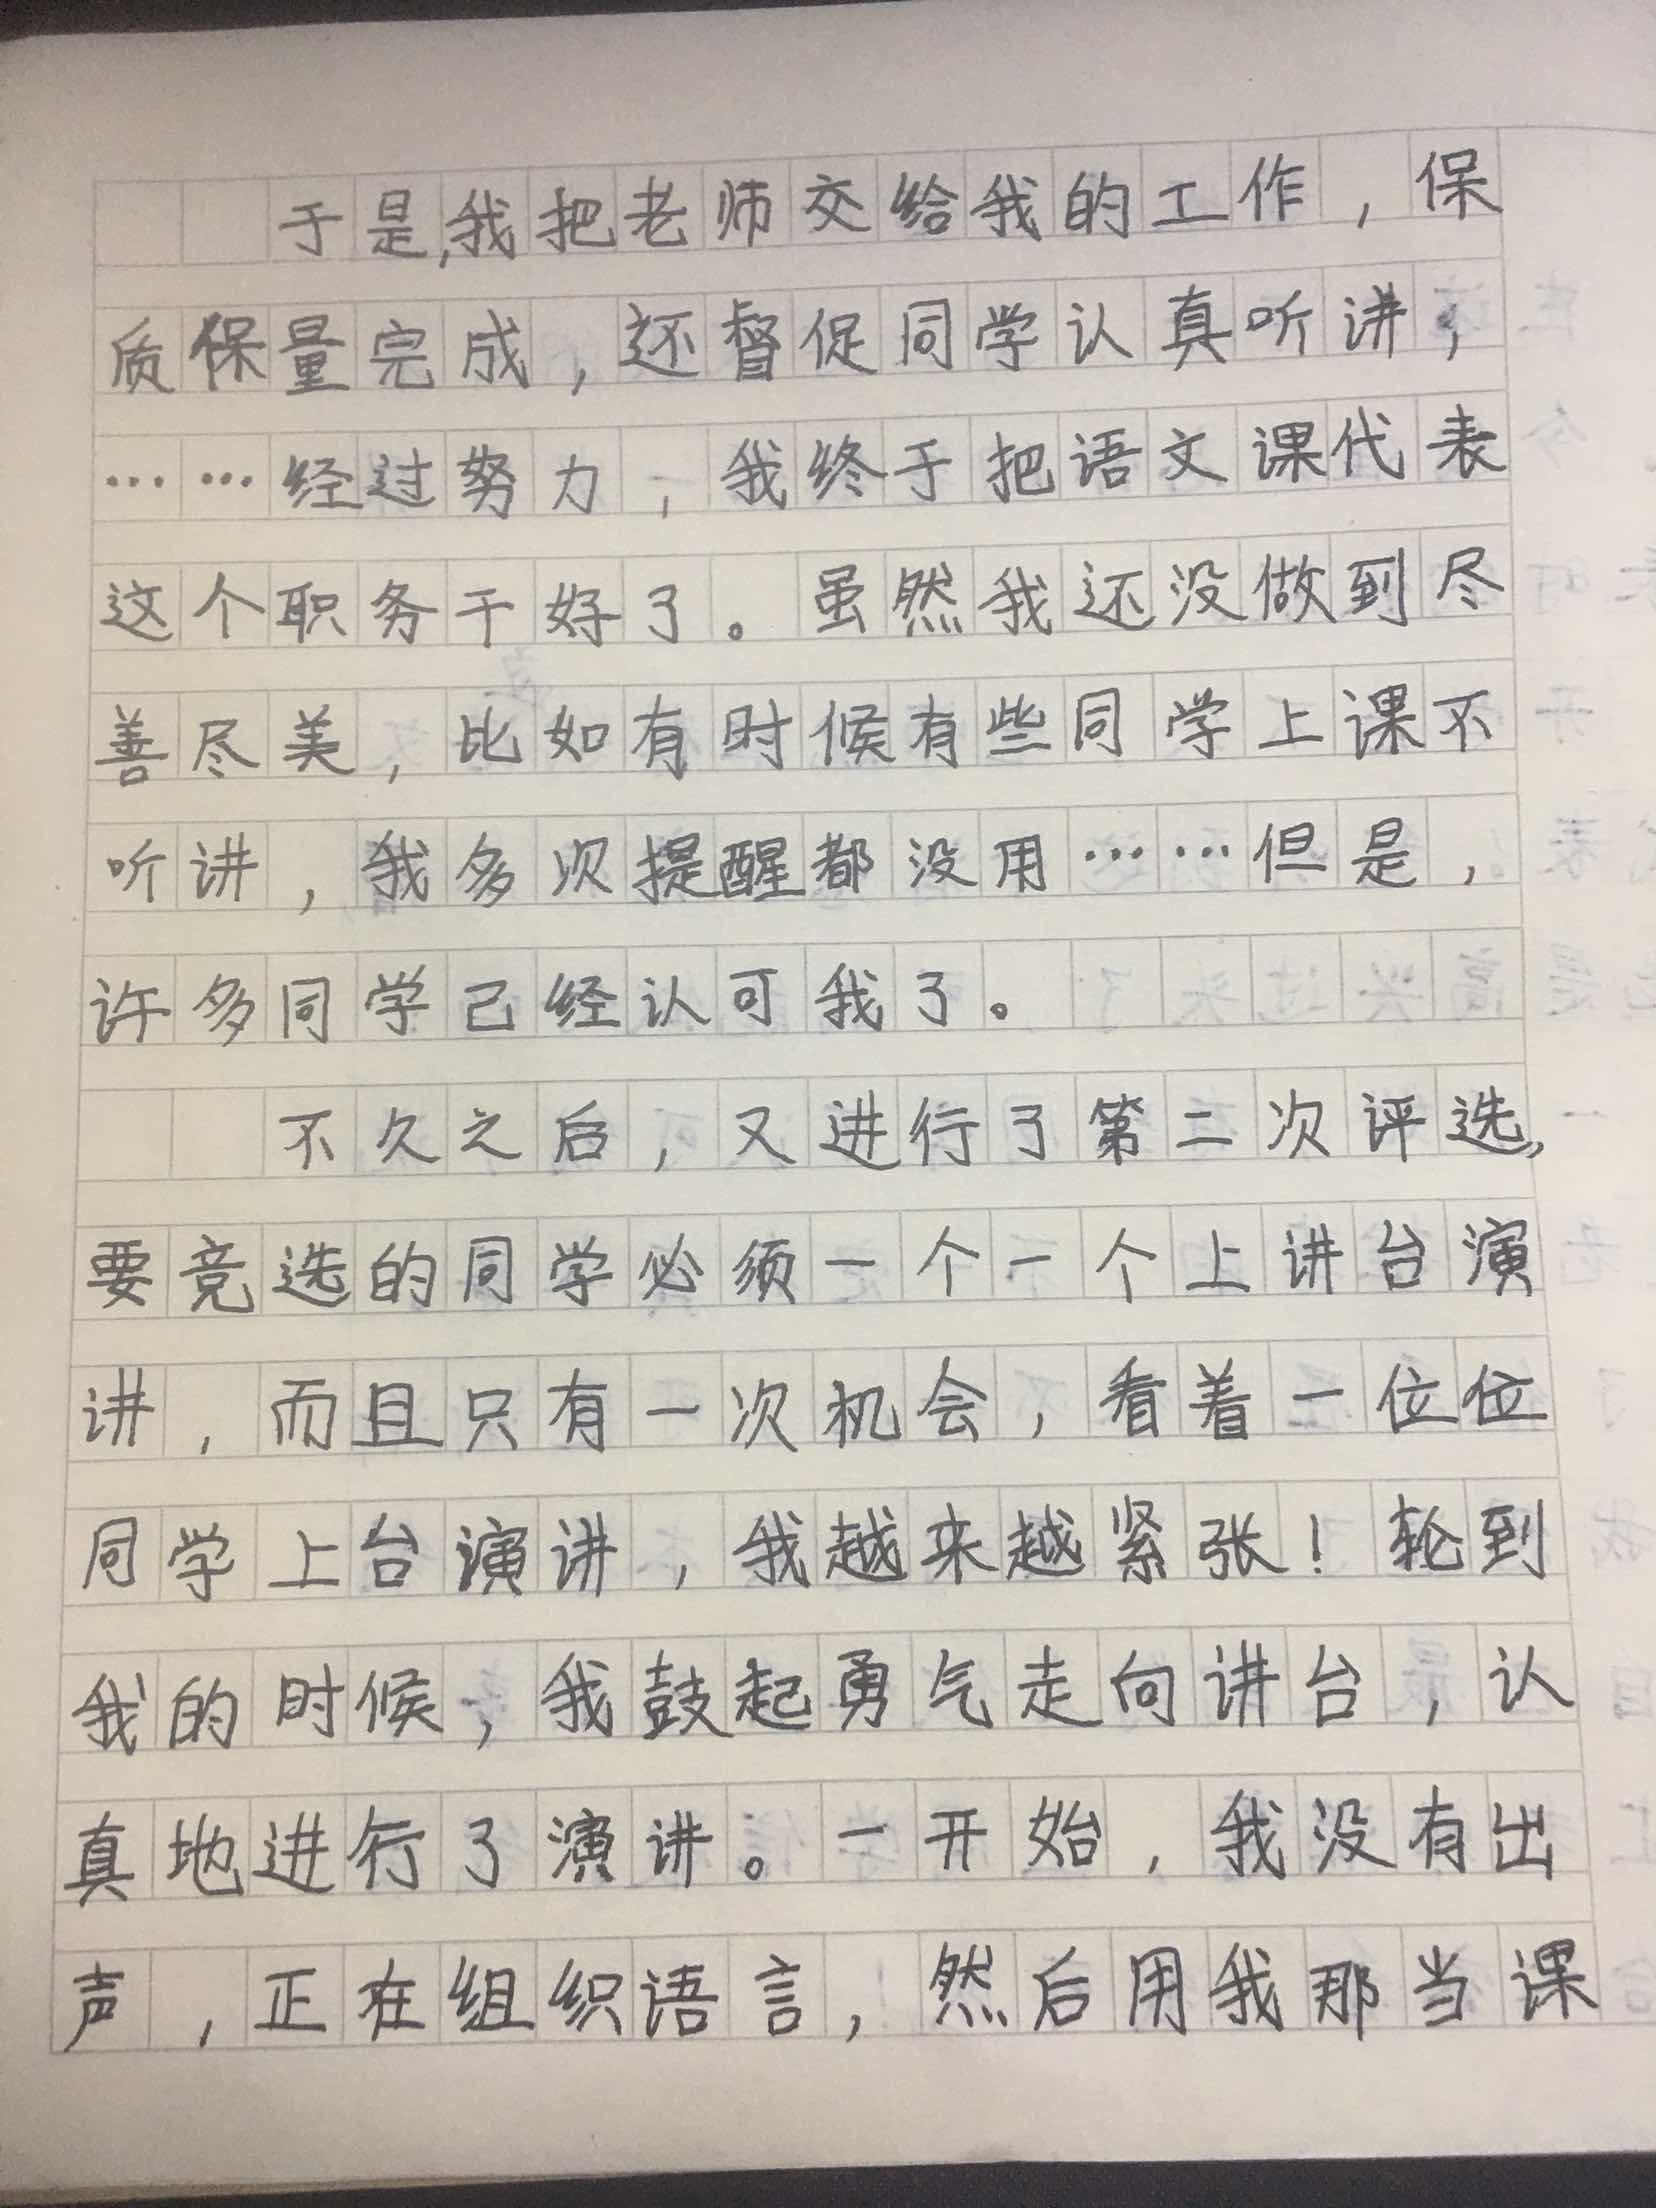 于是,我把老师交给我的工作,保
质保量完成,还督促同学认真听讲,
……经过努力,我终于把语文课代表
这个职务干好了。虽然我还没做到尽
善尽美,比如有时候有些同学上课不
听讲,我多次提醒都没用……但是,
许多同学己经认可我了。
不久之后,又进行了第二次评选,
要竞选的同学必须一个一个上讲台演
讲,而且只有一次机会,看着一位位
同学上台演讲,我越来越紧张!轮到
我的时候,我鼓起勇气走向讲台,认
真地进行了演讲。一开始,我没有出
声,正在组织语言,然后用我那当课